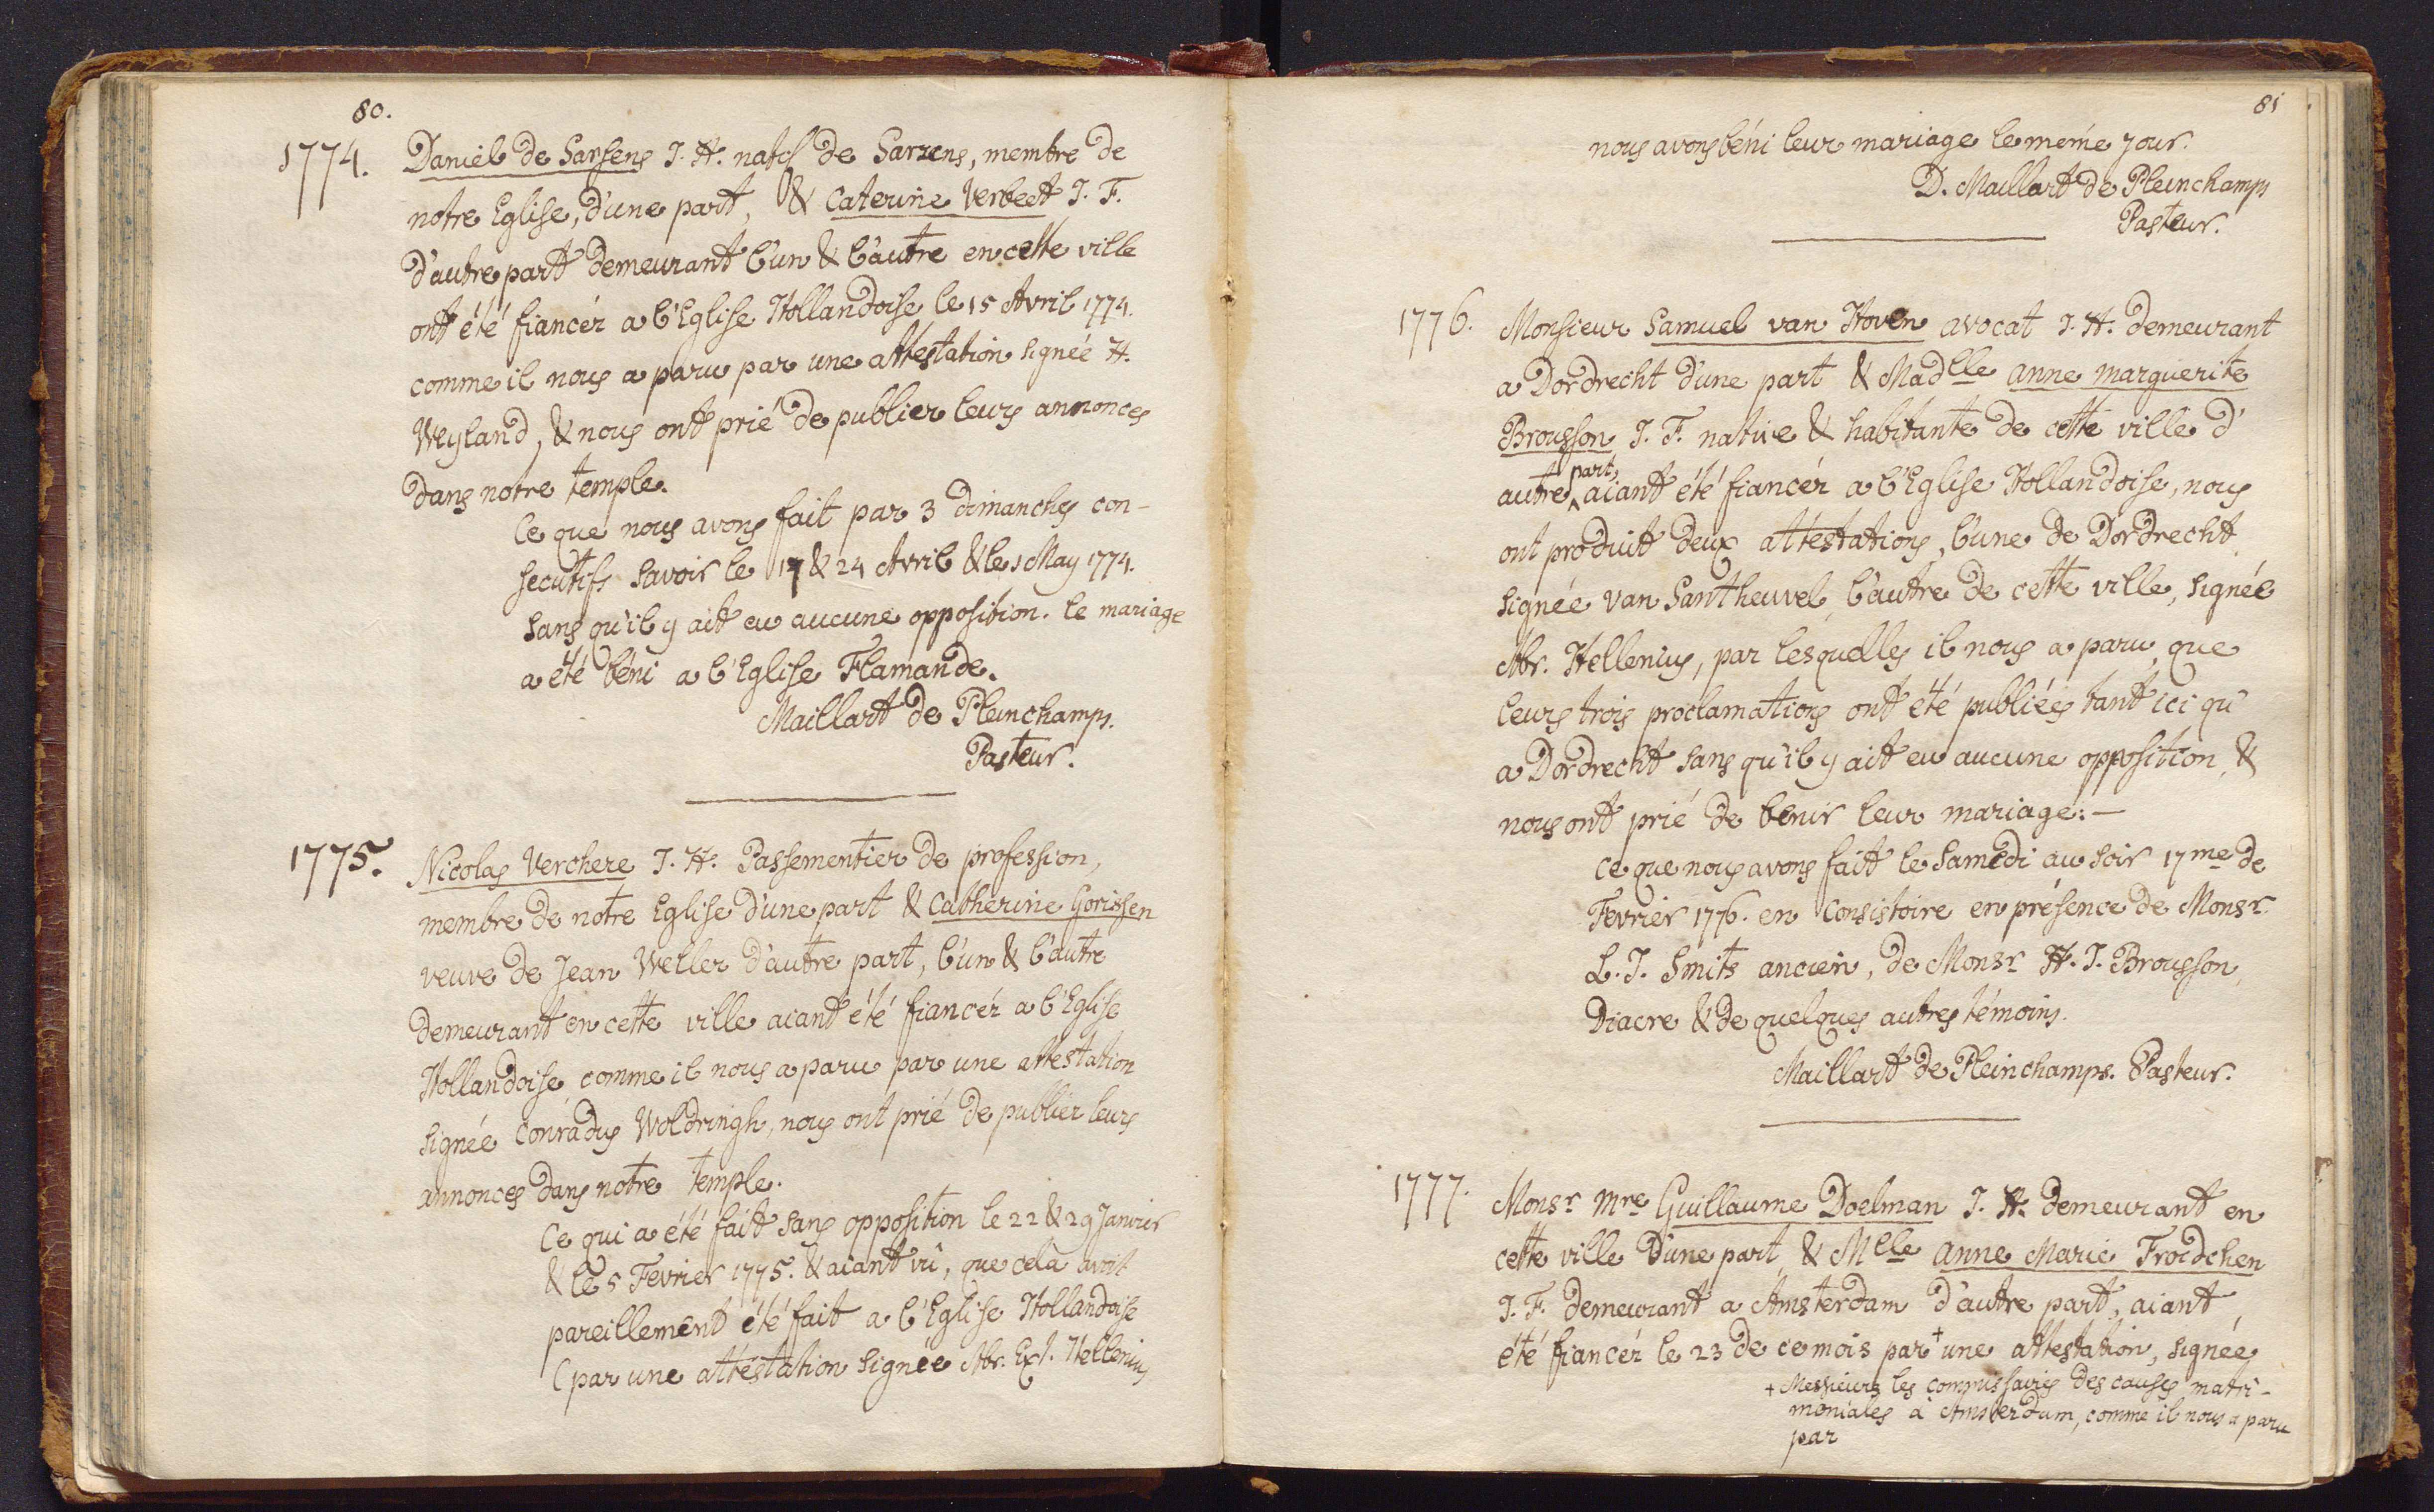 80.
1774. Daniel de Sarsens J. H. natif de Sarzens, membre de
notre Eglise, d'une part, & Caterine Verbeet J. F.
d'autre part demeurant l'un & l'autre en cette ville
ont été fiancéz a l'Eglise Hollandoise le 15 Avril 1774.
comme il nous a paru par une attestation signée H.
Weyland, & nous ont prié de publier leurs annonces
dans notre temple.
Ce que nous avons fait par 3 dimanches con-
secutifs savoir le 17 & 24 Avril & le 1 May 1774.
sans qu'il y ait eu aucune opposition. le mariage
a été béni a l'Eglise Flamande.
Maillart de Pleinchamps.
Pasteur.
1775. Nicolas Verchere J. H. Passementier de profession,
membre de notre Eglise d'une part & Catherine Gorissen
veuve de Jean Weller d'autre part, l'un & l'autre
demeurant en cette ville aiant été fiancéz a l'Eglise
Hollandoise comme il nous a paru par une attestation
signée Conradus Woldringh, nous ont prié de publier leurs
annonces dans notre temple.
Ce qui a été fait sans opposition le 22 & 29 Janvier
& le 5 Fevrier 1775. & aiant vû, que cela avoit
pareillement été fait a l'Eglise Hollandoise
(par une attestation signee Abr. Ext. Hellenius
81
nous avons béni leur mariage le même jour.
D. Maillart de Pleinchamps
Pasteur.
1776. Monsieur Samuel van Hoven avocat J. H. demeurant
a Dordrecht d'une part & Madlle Anne Marguerite
Brousson J. F. native & habitante de cette ville d'
autre part, aiant été fiancéz a l'Eglise Hollandoise, nous
ont produit deux attestations, l'une de Dordrecht
signée van Santheuvel, l'autre de cette ville, signée
Abr. Hellenius, par lesquelles il nous a paru, que
leurs trois proclamations ont été publiées tant ici qu'
a Dordrecht sans qu'il y ait eu aucune opposition, &
nous ont prié de benir leur mariage: —
ce que nous avons fait le Samedi au soir 17me de
Fevrier 1776. en Consistoire en présence de Monsr
L. J. Smits ancien, de Monsr H. J. Brousson,
Diacre & de quelques autres témoins.
Maillart de Pleinchamps. Pasteur.
1777. Monsr Mre Guillaume Doelman J. H. demeurant en
cette ville d'une part, & Mlle Anne Marie Froidchen
J. F. demeurant a Amsterdam d'autre part, aiant
été fiancéz le 23 de ce mois par + une attestation, signée
+ Messieurs les commissaires des causes matri-
moniales a Amsterdam, comme il nous a paru
par